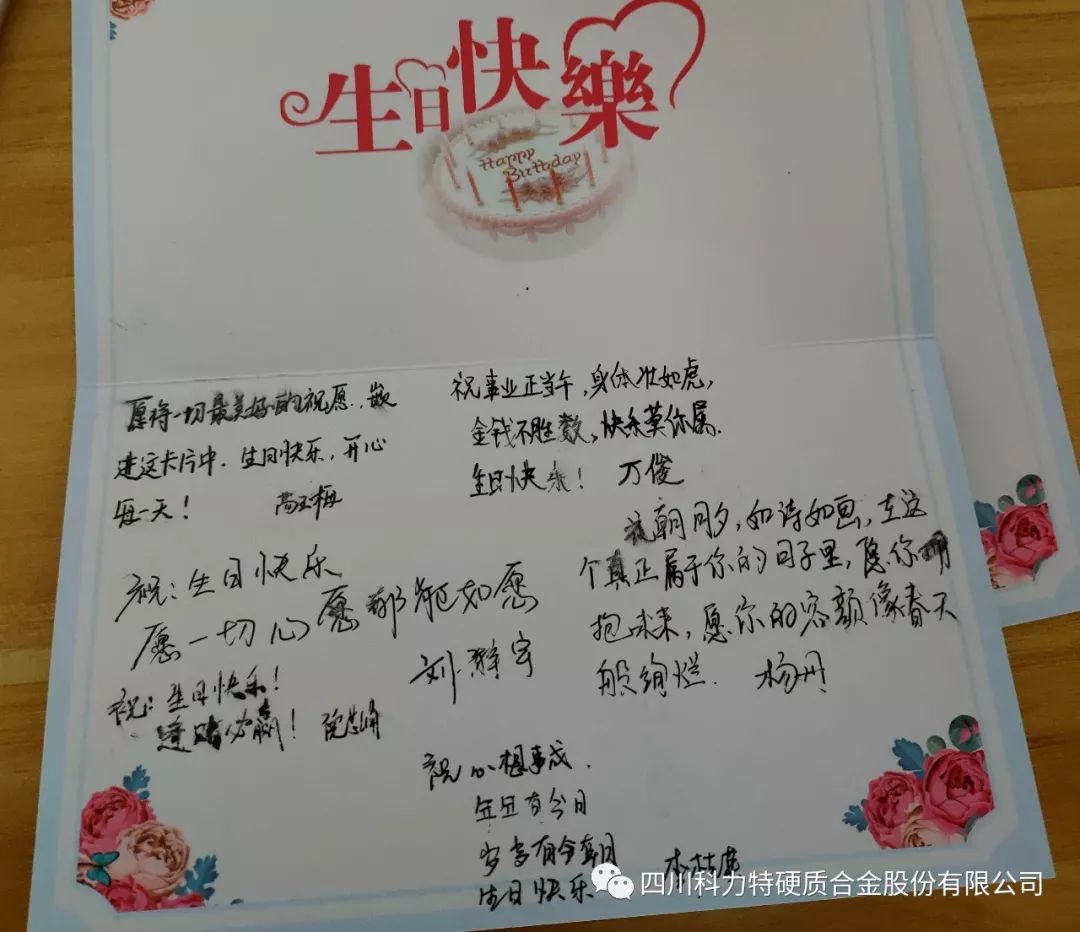 生日快樂
Happy
Birthday
愿将一切最美好的祝愿，嵌
进这卡片中．生日快乐，开心
每一天！
祝事业正当午，身体壮如虎，
金钱不胜数，快乐莫你属．
生日快乐！ 万俊
花朝月夕，如诗如画，在这
个真正属于你的日子里，愿你拥
抱未来，愿你的容颜像春天
般绚烂． 杨丹
祝：生日快乐
愿一切心愿都能如愿
祝：生日快乐！
逢赌必赢！
祝心想事成．
年年有今日
岁岁有今朝
生日快乐
四川科力特硬质合金股份有限公司